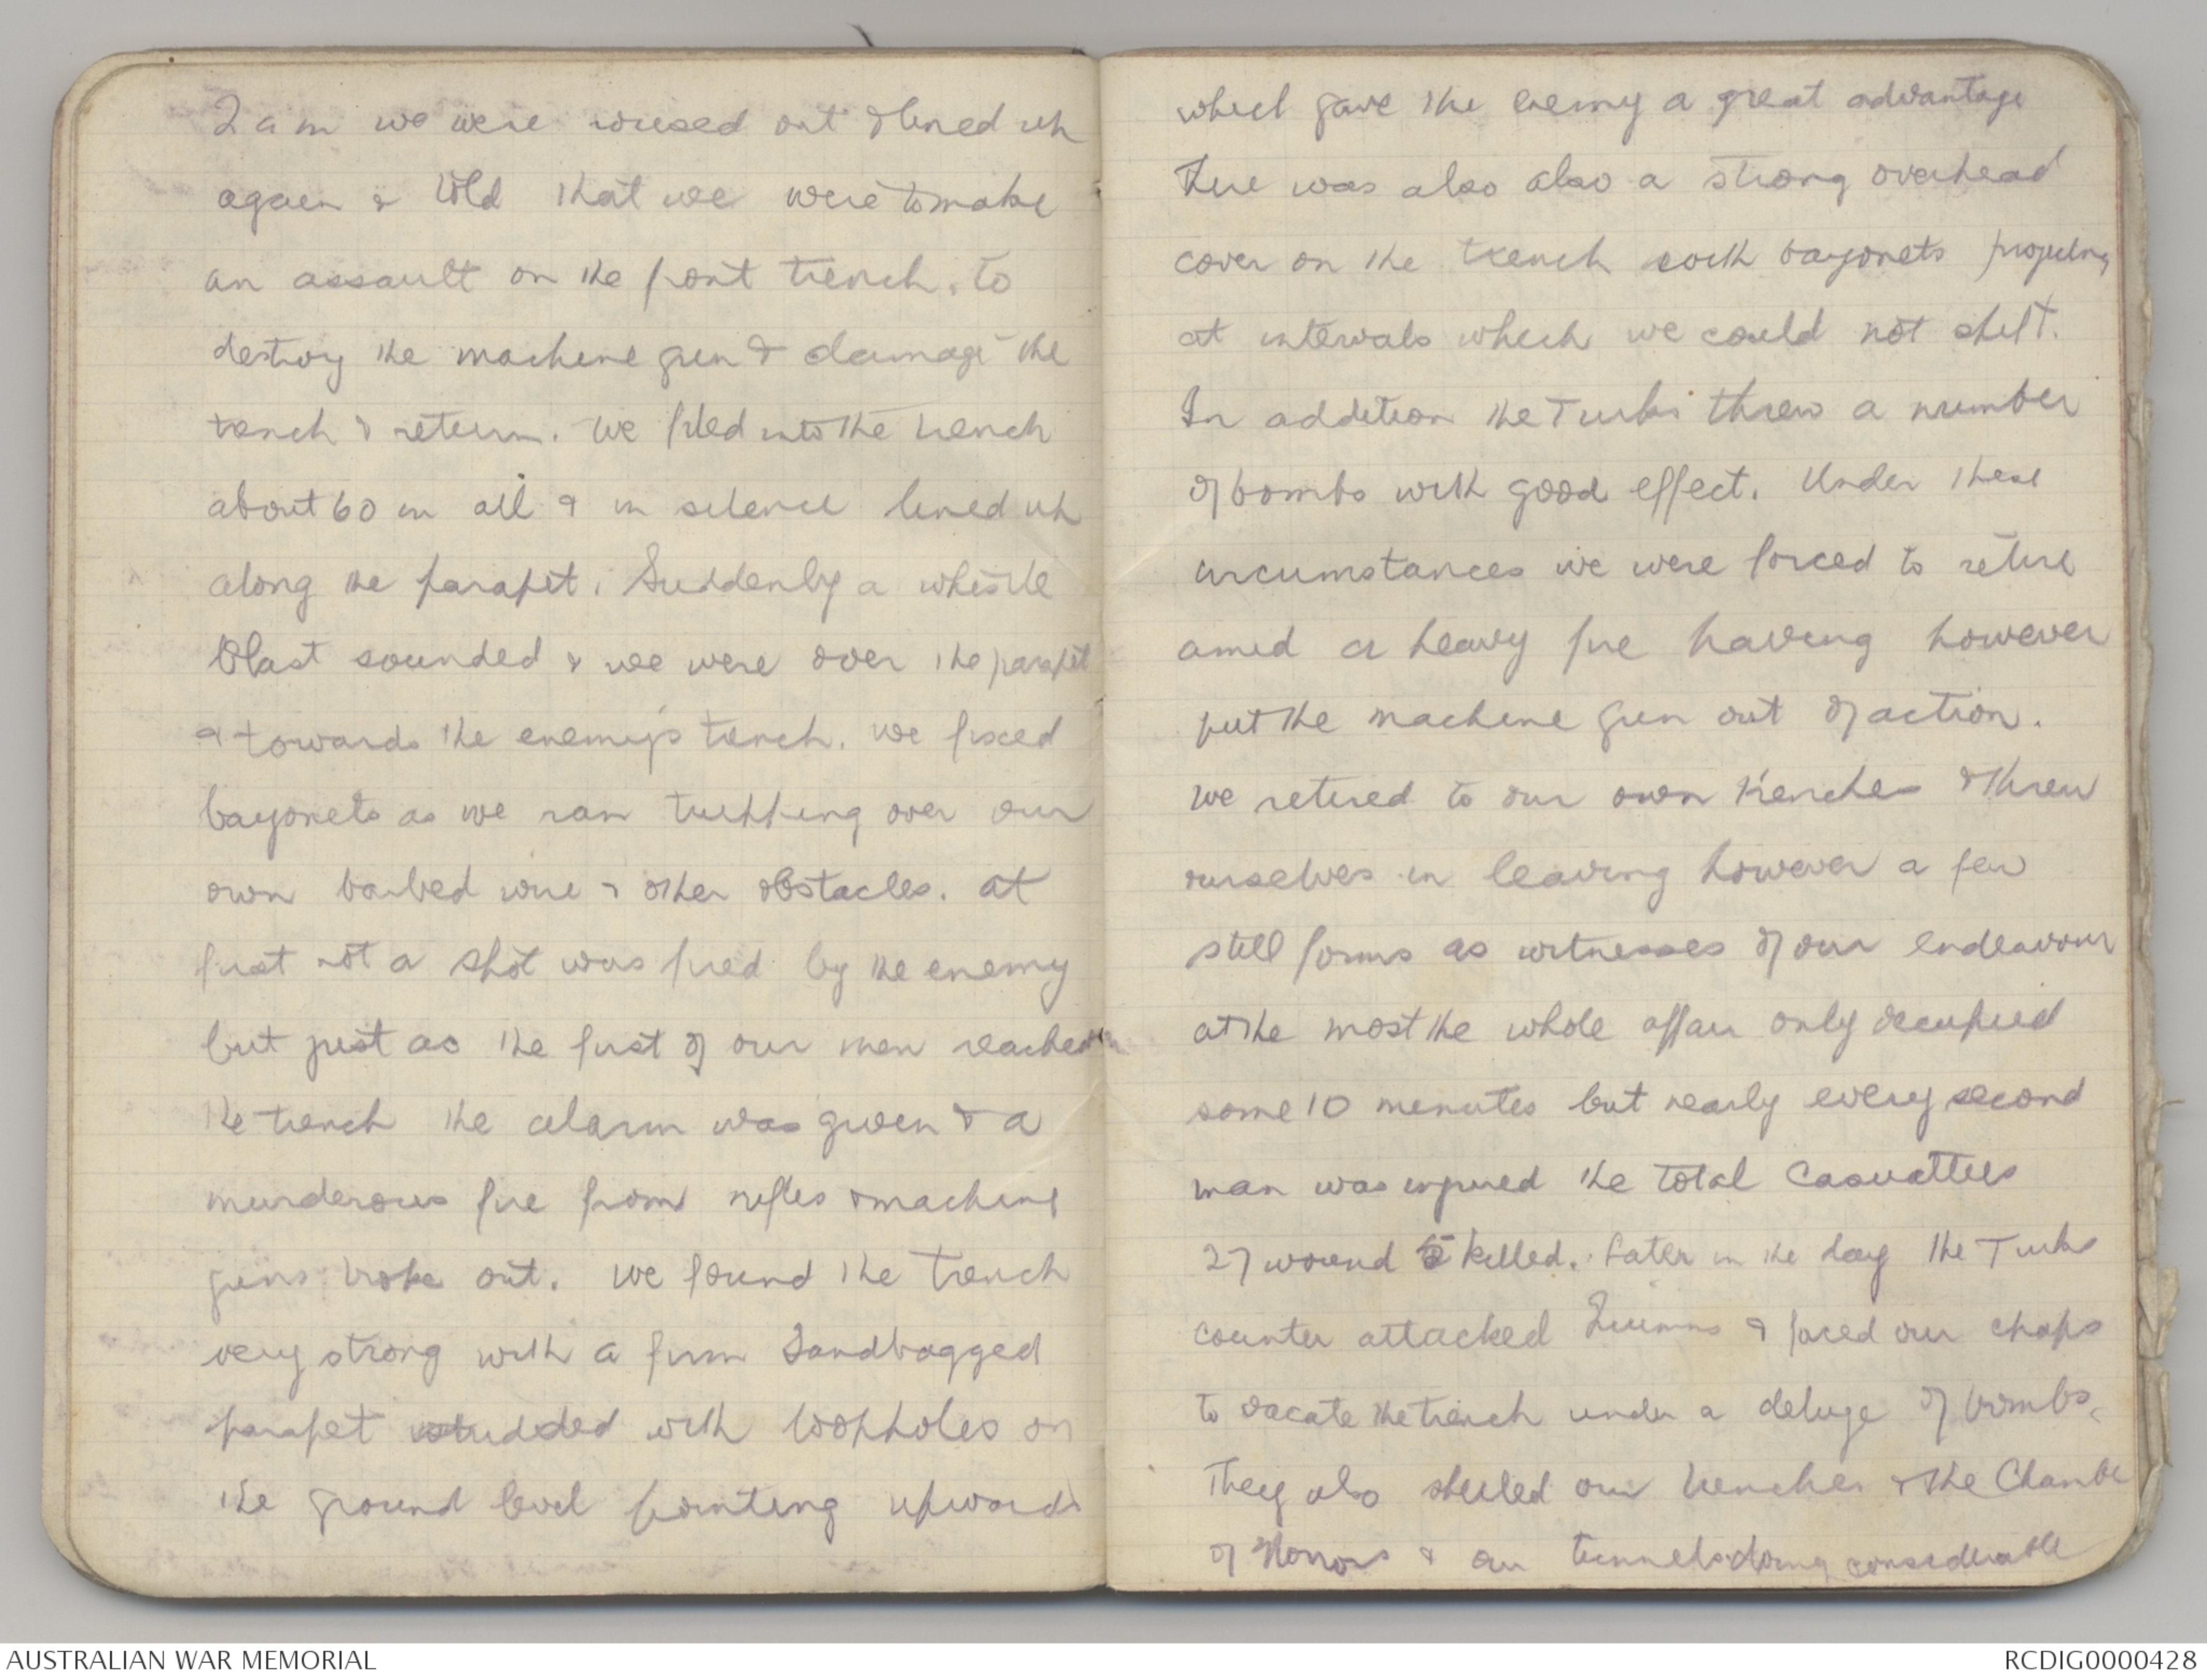 2 am we were roused out & lined up
again & told that we were to make
an assault on the front trench, to
destroy the machine gun & damage the
trench & return. We filed into the trench
about 60 in all & in silence lined up
along the parapet. Suddenly a whistle
blast sounded & we were over the parapet
& towards the enemy's trench. We fixed
bayonets as we ran tripping over our
own barbed wire & other obstacles. At
first not a shot was fired by the enemy
but just as the first of our men reached
the trench the alarm was given & a
murderous fire from rifles & machine
guns broke out. We found the trench
very strong with a firm Sandbagged
parapet studded with loopholes on
the ground level pointing upwards
which gave the enemy a great advantage
There was also also a strong overhead
cover on the trench with bayonets projecting
at intervals which we could not shift.
In addition the Turks threw a number
of bombs with good effect. Under these
circumstances we were forced to retire
amid a heavy fire having however
put the machine gun out of action.
We retired to our own trenches & threw
ourselves in leaving however a few
still forms as witnesses of our endeavour
at the most the whole affair only occupied
some 10 minutes but nearly every second
man was injured the total Casualties
27 wound 5 killed. Later in the day the Turks
counter attacked Quinns & forced our chaps
to vacate the trench under a deluge of bombs.
They also shelled our trenches & the Chambe
of Horrors & our tunnels doing considerable
AUSTRALIAN WAR MEMORIAL
RCDIG0000428